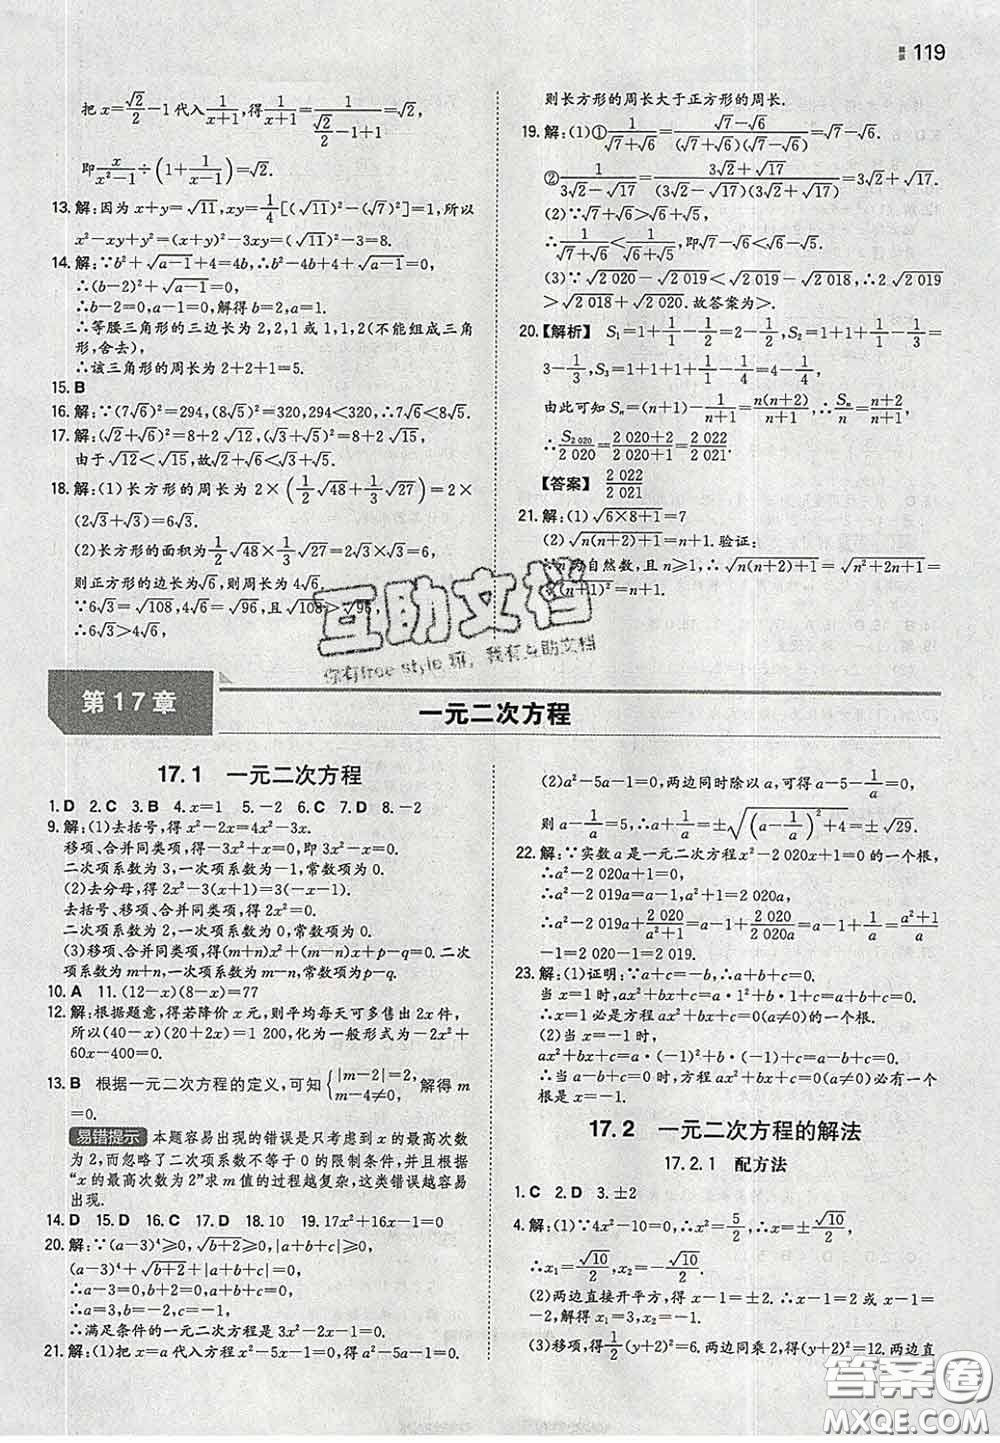 119
把 x=√2/2−1代入,得1/(x+1)=1/(√2/2−1+1)=√2,
即x/(x²−1)÷(1+1/(x−1))=√2.
13. 解:因为 x+y=√11,xy=1/4[(√11)²−(√7)²]=1,所以
x²−xy+y²=(x+y)²−3xy=(√11)²−3=8.
14. 解:∵b²+√(a−1)+4=4b,∴b²−4b+4+√(a−1)=0,
∴(b−2)²+√(a−1)=0,
∴b−2=0,a−1=0,解得 b=2,a=1.
∴等腰三角形的三边长为 2,2,1 或 1,1,2(不能组成三角
形,舍去),
∴该三角形的周长为 2+2+1=5.
15. B
16. 解:∵(7√6)²=294,(8√5)²=320,294<320,∴7√6<8√5.
17. 解:(√2+√6)²=8+2√12,(√3+√5)²=8+2√15,
由于√12<√15,故√2+√6<√3+√5.
18. 解:(1)长方形的周长为 2×(1/2√48+1/3√27)=2×
(2√3+√3)=6√3.
(2)长方形的面积为1/2√48×1/3√27=2√3×√3=6,
则正方形的边长为√6,周长为 4√6.
∵6√3=√108,4√6=√96,且√108>√96,
∴6√3>4√6,
则长方形的周长大于正方形的周长.
19. 解:(1)①1/(√7+√6)=(√7−√6)/((√7+√6)(√7−√6))=√7−√6.
②1/(3√2−√17)=(3√2+√17)/((3√2−√17)(3√2+√17))=3√2+√17.
(2)∵√7+√6>√6+√5,
∴1/(√7+√6)<1/(√6+√5),即√7−√6<√6−√5.
(3)∵√2 020−√2 019<√2 019−√2 018,∴2√2 019
>√2 018+√2 020.故答案为>.
20. 【解析】 S₁=1+1/1−1/2=2−1/2,S₂=1+1+1/2−1/3=
3−1/3,S₃=1+1+1+1/3−1/4=4−1/4,
由此可知 Sₙ=(n+1)−1/(n+1)=n(n+2)/(n+1),∴Sₙ/n=(n+2)/(n+1),
∴S₂ ₀₂₀/2 020=(2 020+2)/(2 020+1)=2 022/2 021.
【答案】 2 022/2 021
21. 解:(1)√(6×8+1)=7
(2)√(n(n+2)+1)=n+1.验证:
∵n为自然数,且 n≥1,∴√(n(n+2)+1)=√(n²+2n+1)=
√(n+1)²=n+1.
互助文档
你有free style 嘛,我有互助文档
第 17 章
一元二次方程
17.1 一元二次方程
1. D 2. C 3. B 4. x=1 5. −2 6. C 7. D 8. −2
9. 解:(1)去括号,得 x²−2x=4x²−3x.
移项、合并同类项,得−3x²+x=0,即 3x²−x=0.
二次项系数为 3,一次项系数为−1,常数项为 0.
(2)去分母,得 2x²−3(x+1)=3(−x−1).
去括号、移项、合并同类项,得 2x²=0.
二次项系数为 2,一次项系数为 0,常数项为 0.
(3)移项、合并同类项,得(m+n)x²+(m−n)x+p−q=0.二次
项系数为 m+n,一次项系数为 m−n,常数项为 p−q.
10. A 11. (12−x)(8−x)=77
12. 解:根据题意,得若降价 x 元,则平均每天可多售出 2x 件,
所以(40−x)(20+2x)=1 200,化为一般形式为−2x²+
60x−400=0.
13. B 根据一元二次方程的定义,可知{|m−2|=2, m−4≠0,解得 m
=0.
易错提示 本题容易出现的错误是只考虑到 x 的最高次数
为 2,而忽略了二次项系数不等于 0 的限制条件,并且根据
“x 的最高次数为 2”求 m 值的过程越复杂,这类错误越容易
出现.
14. D 15. D 16. C 17. D 18. 10 19. 17x²+16x−1=0
20. 解:∵(a−3)⁴≥0,√(b+2)≥0,|a+b+c|≥0,
(a−3)⁴+√(b+2)+|a+b+c|=0,
∴a−3=0,b+2=0,a+b+c=0,
∴a=3,b=−2,c=−1,
∴满足条件的一元二次方程是 3x²−2x−1=0.
21. 解:(1)把 x=a 代入方程 x²−5x−1=0,得 a²−5a−1=0.
(2)a²−5a−1=0,两边同时除以 a,可得 a−5−1/a=0,
则 a−1/a=5,∴a+1/a=±√((a−1/a)²+4)=±√29.
22. 解:∵实数 a 是一元二次方程 x²−2 020x+1=0 的一个根,
∴a²−2 020a+1=0,
∴a²−2 019a=a−1,a²+1=2 020a,
∴a²−2 019a+2 020/(a²+1)=a−1+2 020/2 020a=a−1+1/a=(a²+1)/a
−1=2 020−1=2 019.
23. 解:(1)证明:∵a+c=−b,∴a+b+c=0.
当 x=1 时,ax²+bx+c=a·1²+b·1+c=a+b+c=0,
∴x=1 必是方程 ax²+bx+c=0(a≠0)的一个根.
(2)当 x=−1 时,
ax²+bx+c=a·(−1)²+b·(−1)+c=a−b+c.
∴当 a−b+c=0 时,方程 ax²+bx+c=0(a≠0)必有一
根是 x=−1.
17.2 一元二次方程的解法
17.2.1 配方法
1. C 2. D 3. ±2
4. 解:(1)∵4x²−10=0,∴x²=5/2,∴x=±√10/2,
∴x₁=√10/2,x₂=−√10/2.
(2)两边直接开平方,得 x−1=±2.∴x−1=2 或 x−1=
−2,解得 x₁=3,x₂=−1.
(3)移项,得1/2(y+2)²=6,两边同乘 2,得(y+2)²=12,两边直
答案圈
MXQE.COM